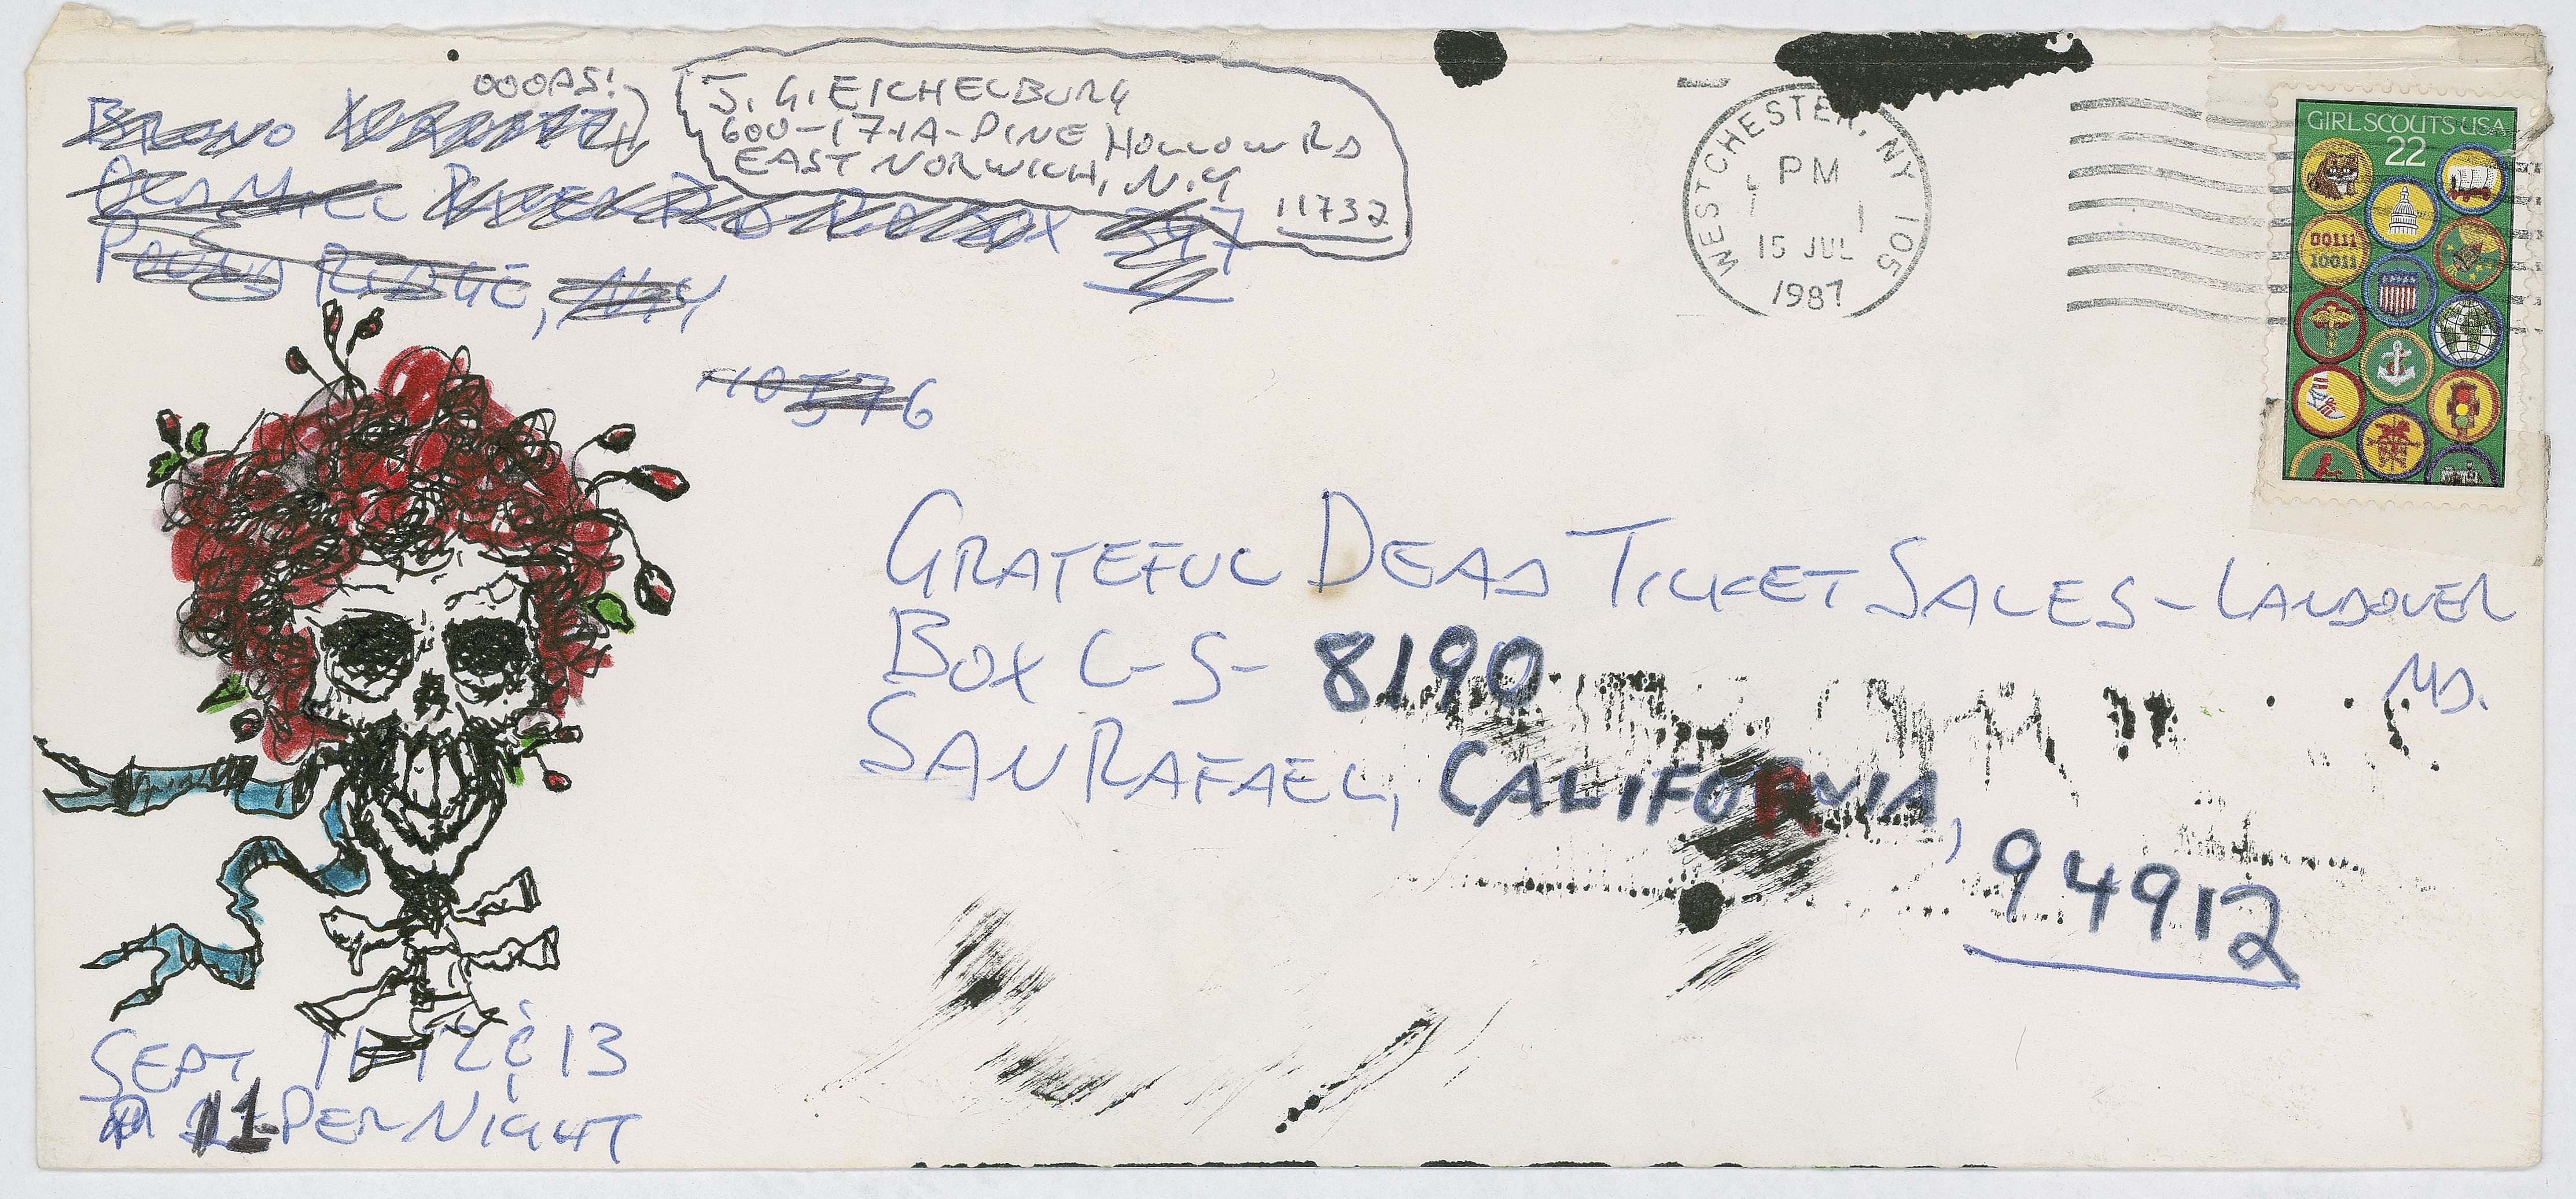 OOOPS!
BRUNO
OLD MILL RIVER RD - BOX 397
POUND RIDGE, N.Y
10576
J. G. EICHELBURG
600-171A-PINE HOLLOW RD
EAST NORWICH, N.Y
11732
WESTCHESTER, NY 105
PM
15 JUL
1987
GIRL SCOUTS USA
22
00111
10011
GRATEFUL DEAD TICKET SALES - LANDOVER
MD.
BOX C-S- 8190
SAN RAFAEL, CALIFORNIA,
94912
SEPT 11 12 & 13
1-PER NIGHT